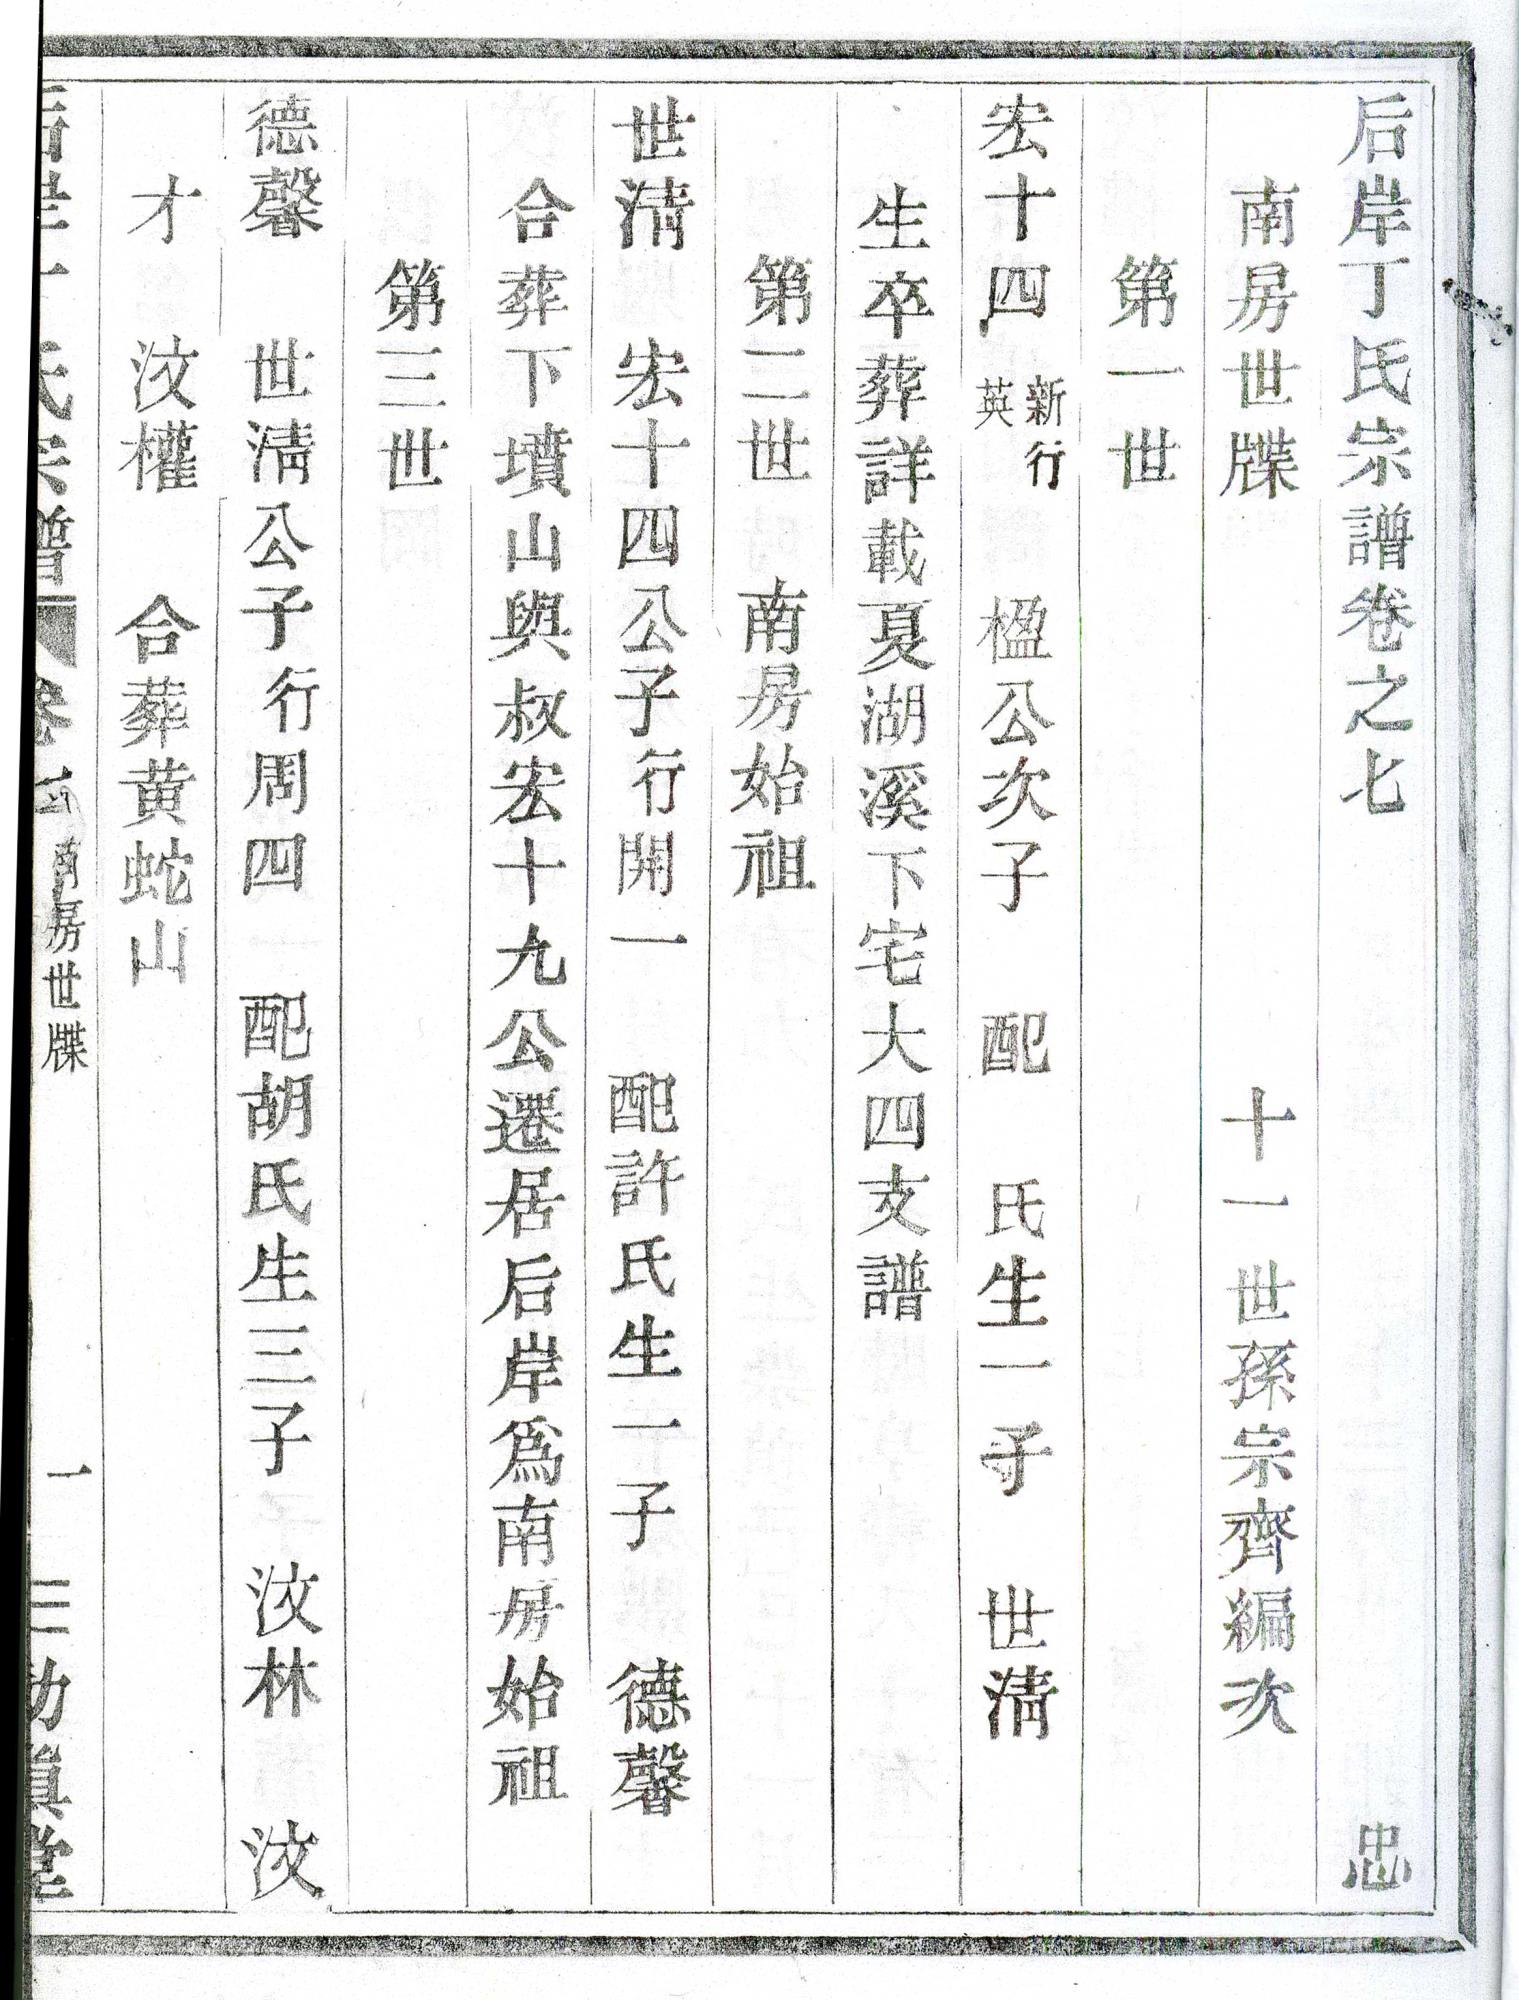 后岸丁氏宗譜卷之七 忠
南房世牒 十一世孫宗齊編次
第一世
宏十四 新行英 楹公次子 配 氏生一子 世淸
生卒葬詳載夏湖溪下宅大四支譜
第二世 南房始祖
世淸 宏十四公子行開一 配許氏生一子 德馨
合葬下墳山與叔宏十九公遷居后岸爲南房始祖
第三世
德馨 世淸公子行周四 配胡氏生三子 汶林 汶
才 汶權 合葬黃蛇山
后岸丁氏宗譜 卷 南房世牒 一 三勿眞堂